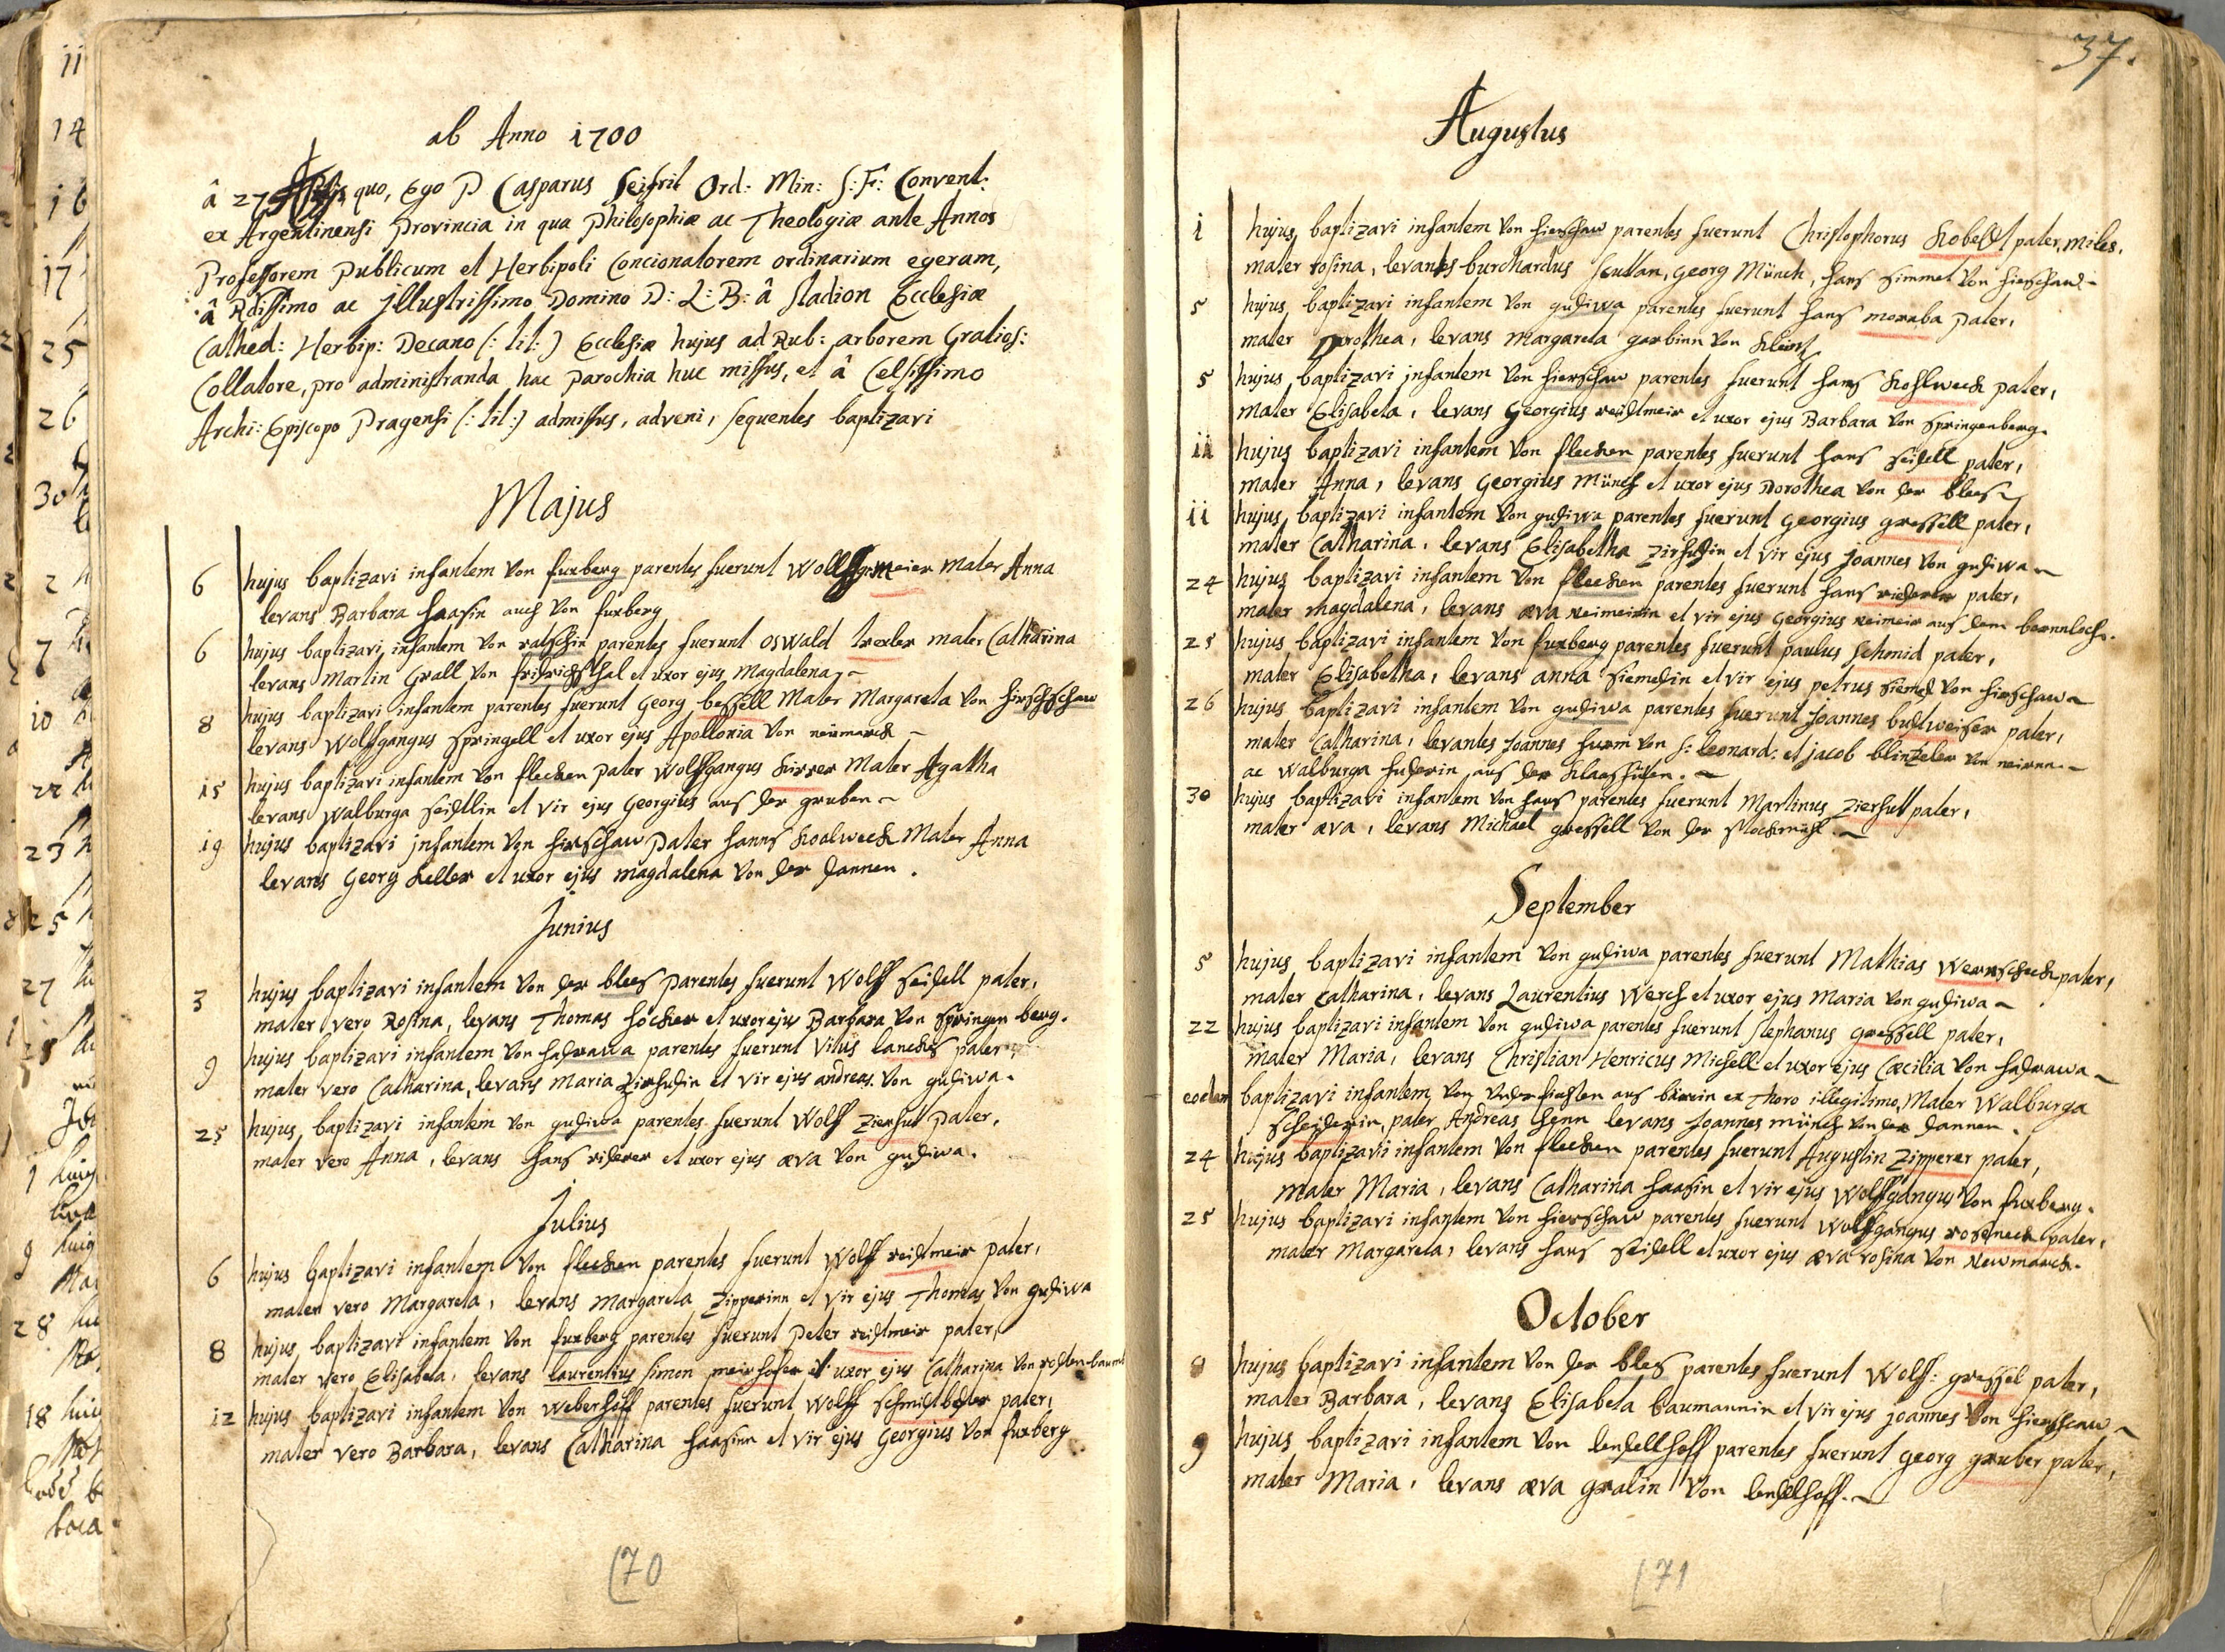 ab Anno 1700
â 27 quo, Ego P Casparus Seifrit Ord: Min: S: F: Convent:
ex Argentinensi Provincia in qua Philosophiæ ac Theologiæ ante Annos
Professorem Publicum et Herbipoli Concionatorem ordinarium egeram,
â Rdissimo ac Jllustrissimo Domino D: L: B: â Stadion Ecclesiæ
Cathed: Herbip: Decano (: tit:) Ecclesiæ hujus ad Rub: arborem Gratios:
Collatore, pro administranda hac Parochia huc missus, et â Celsissimo
Archi: Episcopo Pragensi (: tit:) admissus, adveni, sequentes baptizavi
Majus
6 hujus baptizavi infantem von fuxberg parentes fuerunt Wolff meier Mater Anna
levans Barbara haasin auch von fuxberg
6 hujus baptizavi infantem von ratschin parentes fuerunt oswald trexler mater Catharina
levans Martin Grall von fridrichsthal et uxor ejus Magdalena
8 hujus baptizavi infantem parentes fuerunt Georg bessell Mater Margareta von hirschschaw
levans Wolffgangus Springell et uxor ejus Apollonia von neimarck
15 hujus baptizavi infantem von flecken pater Wolffgangus kirrer Mater Agatha
levans Walburga Seidlin et vir ejus Georgius aus der gruben
19 hujus baptizavi jnfantem von hirschaw pater hanns koalweck Mater Anna
levans Georg Keller et uxor ejus magdalena von der dannen.
Junius
3 hujus baptizavi infantem von der blees parentes fuerunt Wolff seidell pater,
mater vero Rosina, levans Thomas höcker et uxor ejus Barbara von Springenberg.
9 hujus baptizavi infantem von hadrawa parentes fuerunt Vitus lanckes pater,
mater vero Catharina, levans maria Zierhudin et vir ejus andreas von gudiwa.
25 hujus baptizavi infantem von gudiwa parentes fuerunt Wolff Zierhut pater,
mater vero Anna, levans hans riderer et uxor ejus æva von gudiwa.
Julius
6 hujus baptizavi infantem von flecken parentes fuerunt Wolff reidmeir pater,
mater vero Margareta, levans margareta Zipperinn et vir ejus Thomas von gudiwa
8 hujus baptizavi infantem von fuxberg parentes fuerunt Peter reidmeir pater,
mater vero Elisabeta, levans laurentius simon meirhofer et uxor ejus Catharina von rodtenbaum
12 hujus baptizavi infantem von weberhoff parentes fuerunt wolff schmidt pater,
mater vero Barbara, levans Catharina haasinn et vir ejus Georgius von fuxberg
170
37.
Augustus
1 hujus baptizavi infantem von hierschaw parentes fuerunt Christophorus Kobelt pater, miles,
mater rosina, levantes burchardus Georg Münch, hans Simmet von hierschaw
5 hujus baptizavi infantem von gudiwa parentes fuerunt hans moraba pater,
mater Dorothea, levans Margareta garbinn von
5 hujus baptizavi jnfantem von hierschaw parentes fuerunt hans kohlweck pater,
mater Elisabeta, levans Georgius reidtmeir et uxor ejus Barbara von Springenberg.
11 hujus baptizavi infantem von flecken parentes fuerunt hans Seidell pater,
mater Anna, levans Georgius Münch et uxor ejus Dorothea von der blees
11 hujus baptizavi infantem von gudiwa parentes fuerunt Georgius gressell pater,
mater Catharina, levans Elisabetha Zirhudin et vir ejus joannes von gudiwa
24 hujus baptizavi infantem von flecken parentes fuerunt hans riderer pater,
mater magdalena, levans æva neimeirin et vir ejus Georgius neimeir aus dem bernnloch.
25 hujus baptizavi infantem von fuxberg parentes fuerunt paulus schmid pater,
mater Elisabetha, levans anna Siemedin et vir ejus petrus Siemed von hierschaw
26 hujus baptizavi infantem von gudiwa parentes fuerunt Joannes budweiser pater,
mater Catharina, levantes Joannes von S: leonard: et jacob blinzeler von
ac Walburga huderin aus der klaashüten.
30 hujus baptizavi infantem von haus parentes fuerunt Martinus Zierhutt pater,
mater æva, levans Michael gressell von der stockmühl.
September
5 hujus baptizavi infantem von gudiwa parentes fuerunt Mathias Wernscheck pater,
mater Catharina, levans Laurentius Werch et uxor ejus Maria von gudiwa
22 hujus baptizavi infantem von gudiwa parentes fuerunt Stephanus gressell pater,
mater Maria, levans Christian Henricus Michell et uxor ejus Cæcilia von hadrawa
eodem baptizavi infantem von aus ex thoro illegitimo, Mater Walburga
scheiderin, pater Andreas henn levans Joannes münch von der dannen.
24 hujus baptizavi infantem von flecken parentes fuerunt Augustin Zipperer pater,
mater Maria, levans Catharina haasin et vir ejus Wolffgangus von fuxberg.
25 hujus baptizavi infantem von hierschaw parentes fuerunt Wolffgangus rosmeck pater,
mater Margareta, levans hans Seidell et uxor ejus æva rosina von Newmarck.
October
8 hujus baptizavi infantem von der bles parentes fuerunt Wolff: gressel pater,
mater Barbara, levans Elisabeta baumannin et vir ejus joannes von hierschaw
9 hujus baptizavi infantem von lendellhoff parentes fuerunt Georg gruber pater,
mater Maria, levans æva gralin von lendlhoff.
171